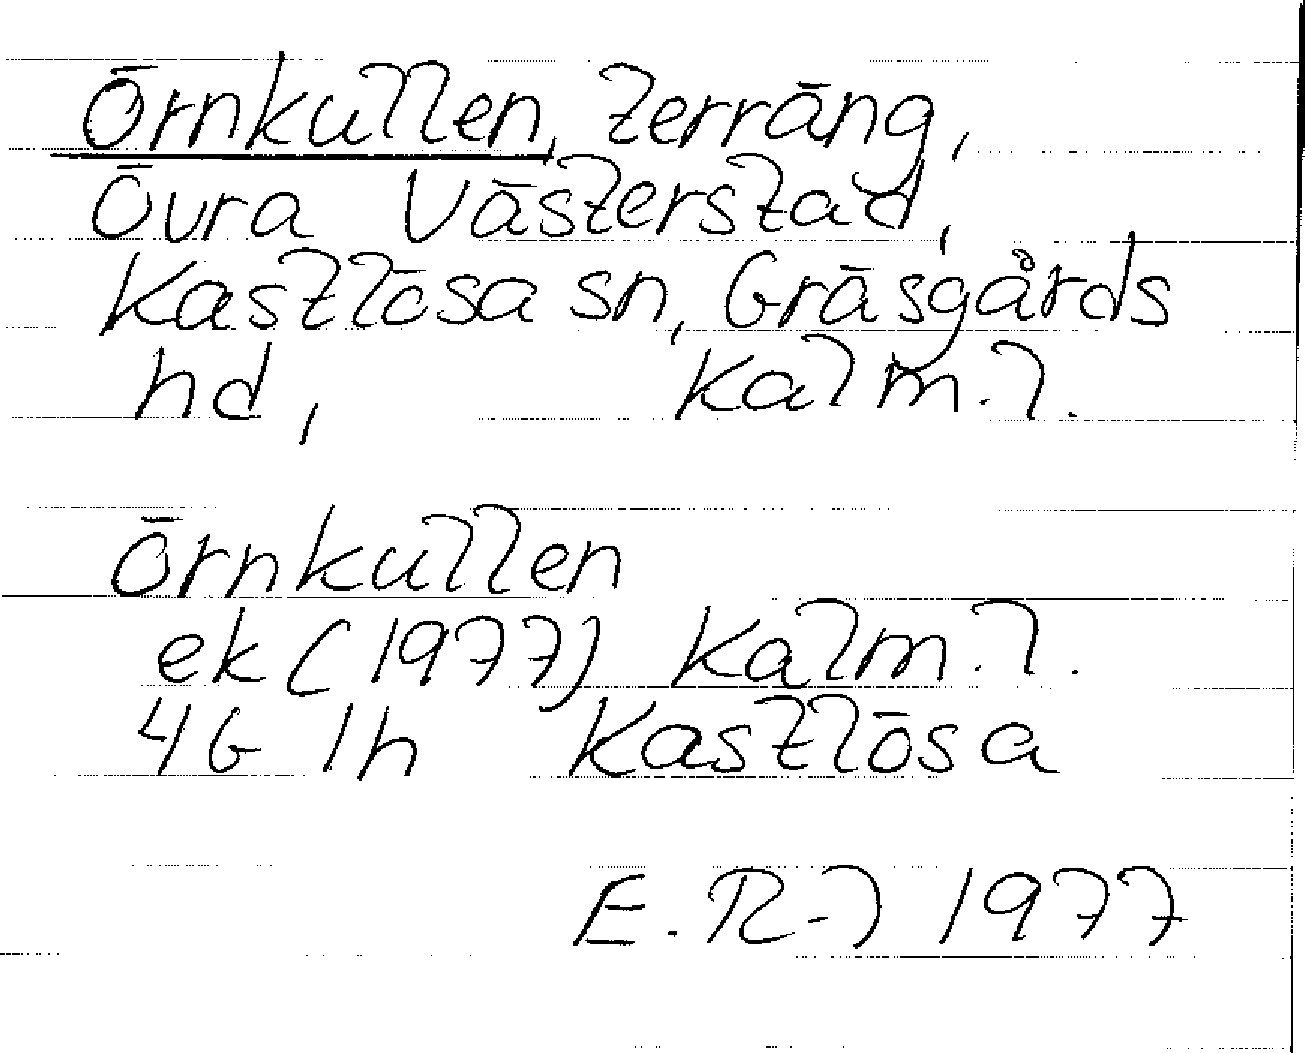 Örnkullen, terräng,
Övra Västerstad,
Kastlösa sn, Gräsgårds
hd, Kalm. l.
Örnkullen
ek (1977) Kalm. l.
4G 1h Kastlösa
E. R-) 1977